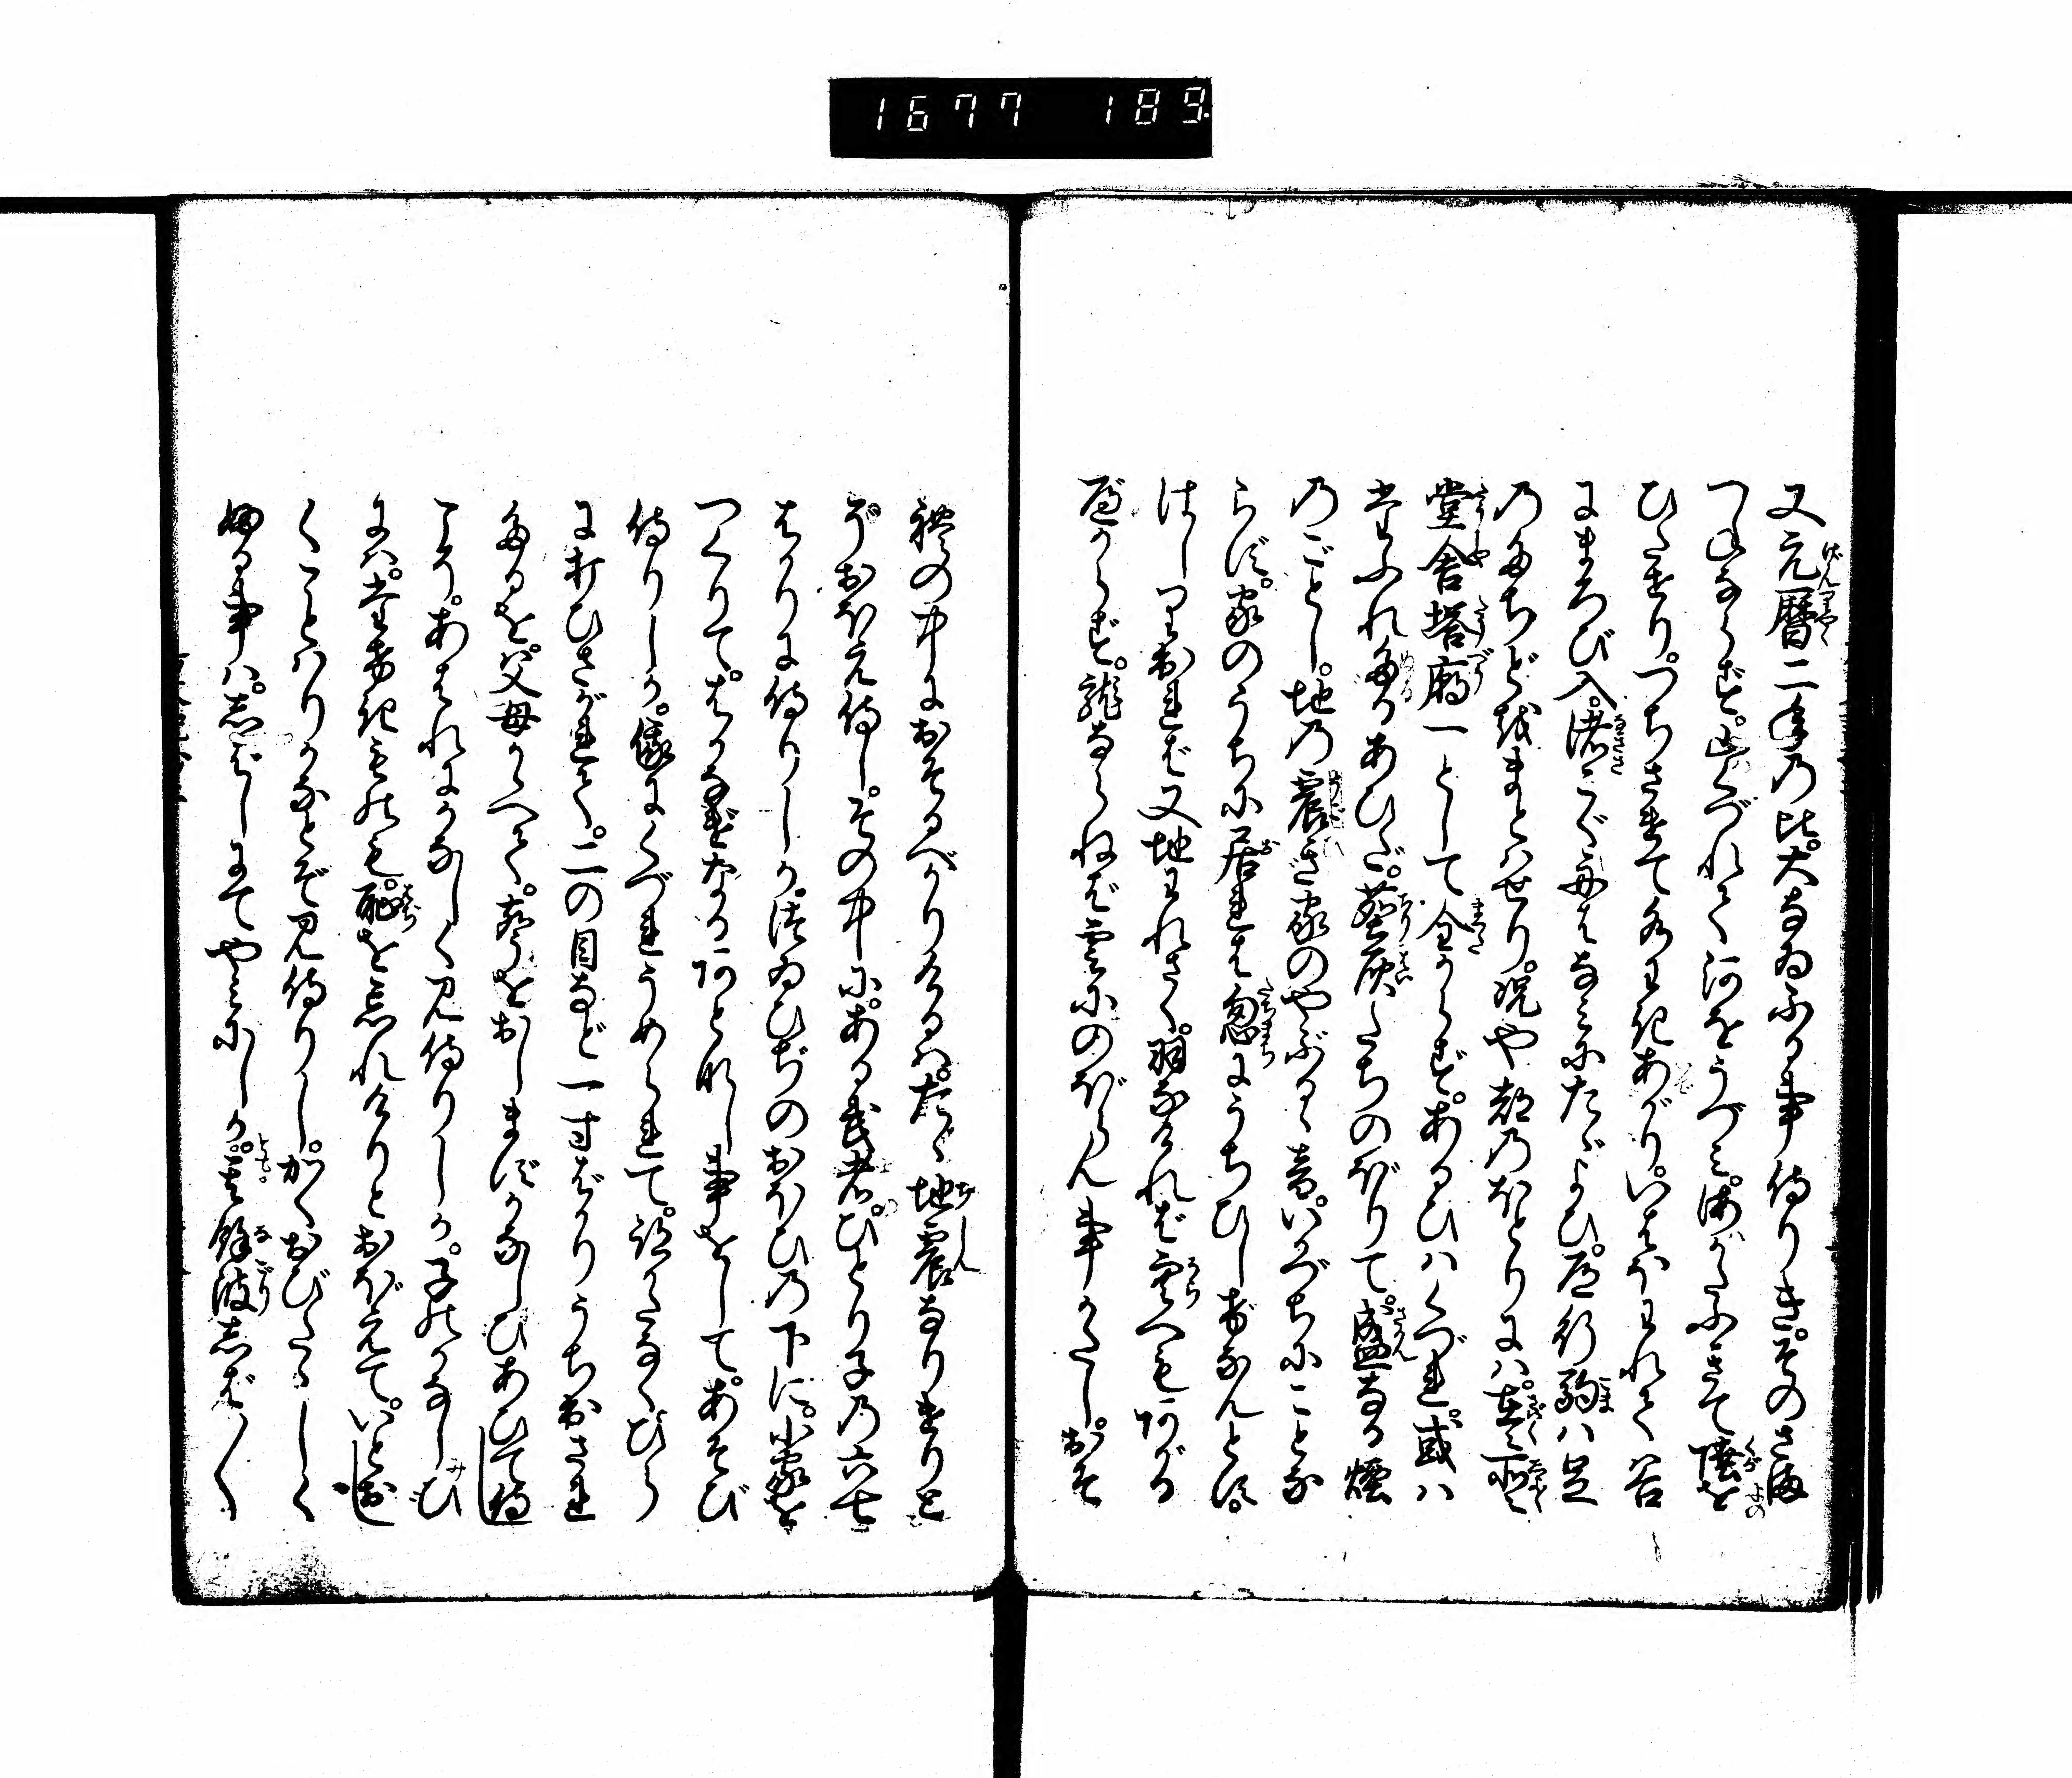 1677 189
又元暦二年乃比。大なゐふる事侍りき。そのさま
つねならず。山くづれて河をうづみ。海かたふきて陸を
ひたせり。つちさけて水わきあがり。いはほわれて谷
にまろび入。渚こぐ舟はなみにたゞよひ。道行駒ハ足
乃たちどをまとハせり。况や都乃ほとりにハ。在々所々
堂舎塔廟一として全からず。あるひハくづれ。或ハ
たふれたるあひだ。塵灰たちのぼりて。盛なる煙
乃ごとし。地乃震ぎ家のやぶるゝ音。いかづちにことな
らず。家のうちに居れは忽にうちひしけなんとす。
はしり出れば又地われさく。羽なければ空へもあがる
べからず。龍ならねば雲にのぼらん事かたし。おそ
礼の中におそるべかりけるハ。たゞ地震なりけりと
ぞおぼえ侍し。その中に。ある武者。ひとり子乃六七
はかりに侍りしか。築ゐひぢのおほひ乃下に。小家を
つくりて。はかなげなるあとなし事をして。あそび
侍りしか。俄にくづれうめられて。跡かたなくひら
に打ひさがれて。二の目など一寸ばかりうち出され
たるを。父母かゝへて。声をおしまずかなしひあひて侍
こそ。あはれにかなしく見侍りしか。子のかなしび
にハ。たけきものも。恥を忘れけりとおぼえて。いとお
しくことハりかなとぞ見侍りし。かくおびたゝしく
ふる事ハ。しばしにてやみにしか。とも。其餘波しば〳〵